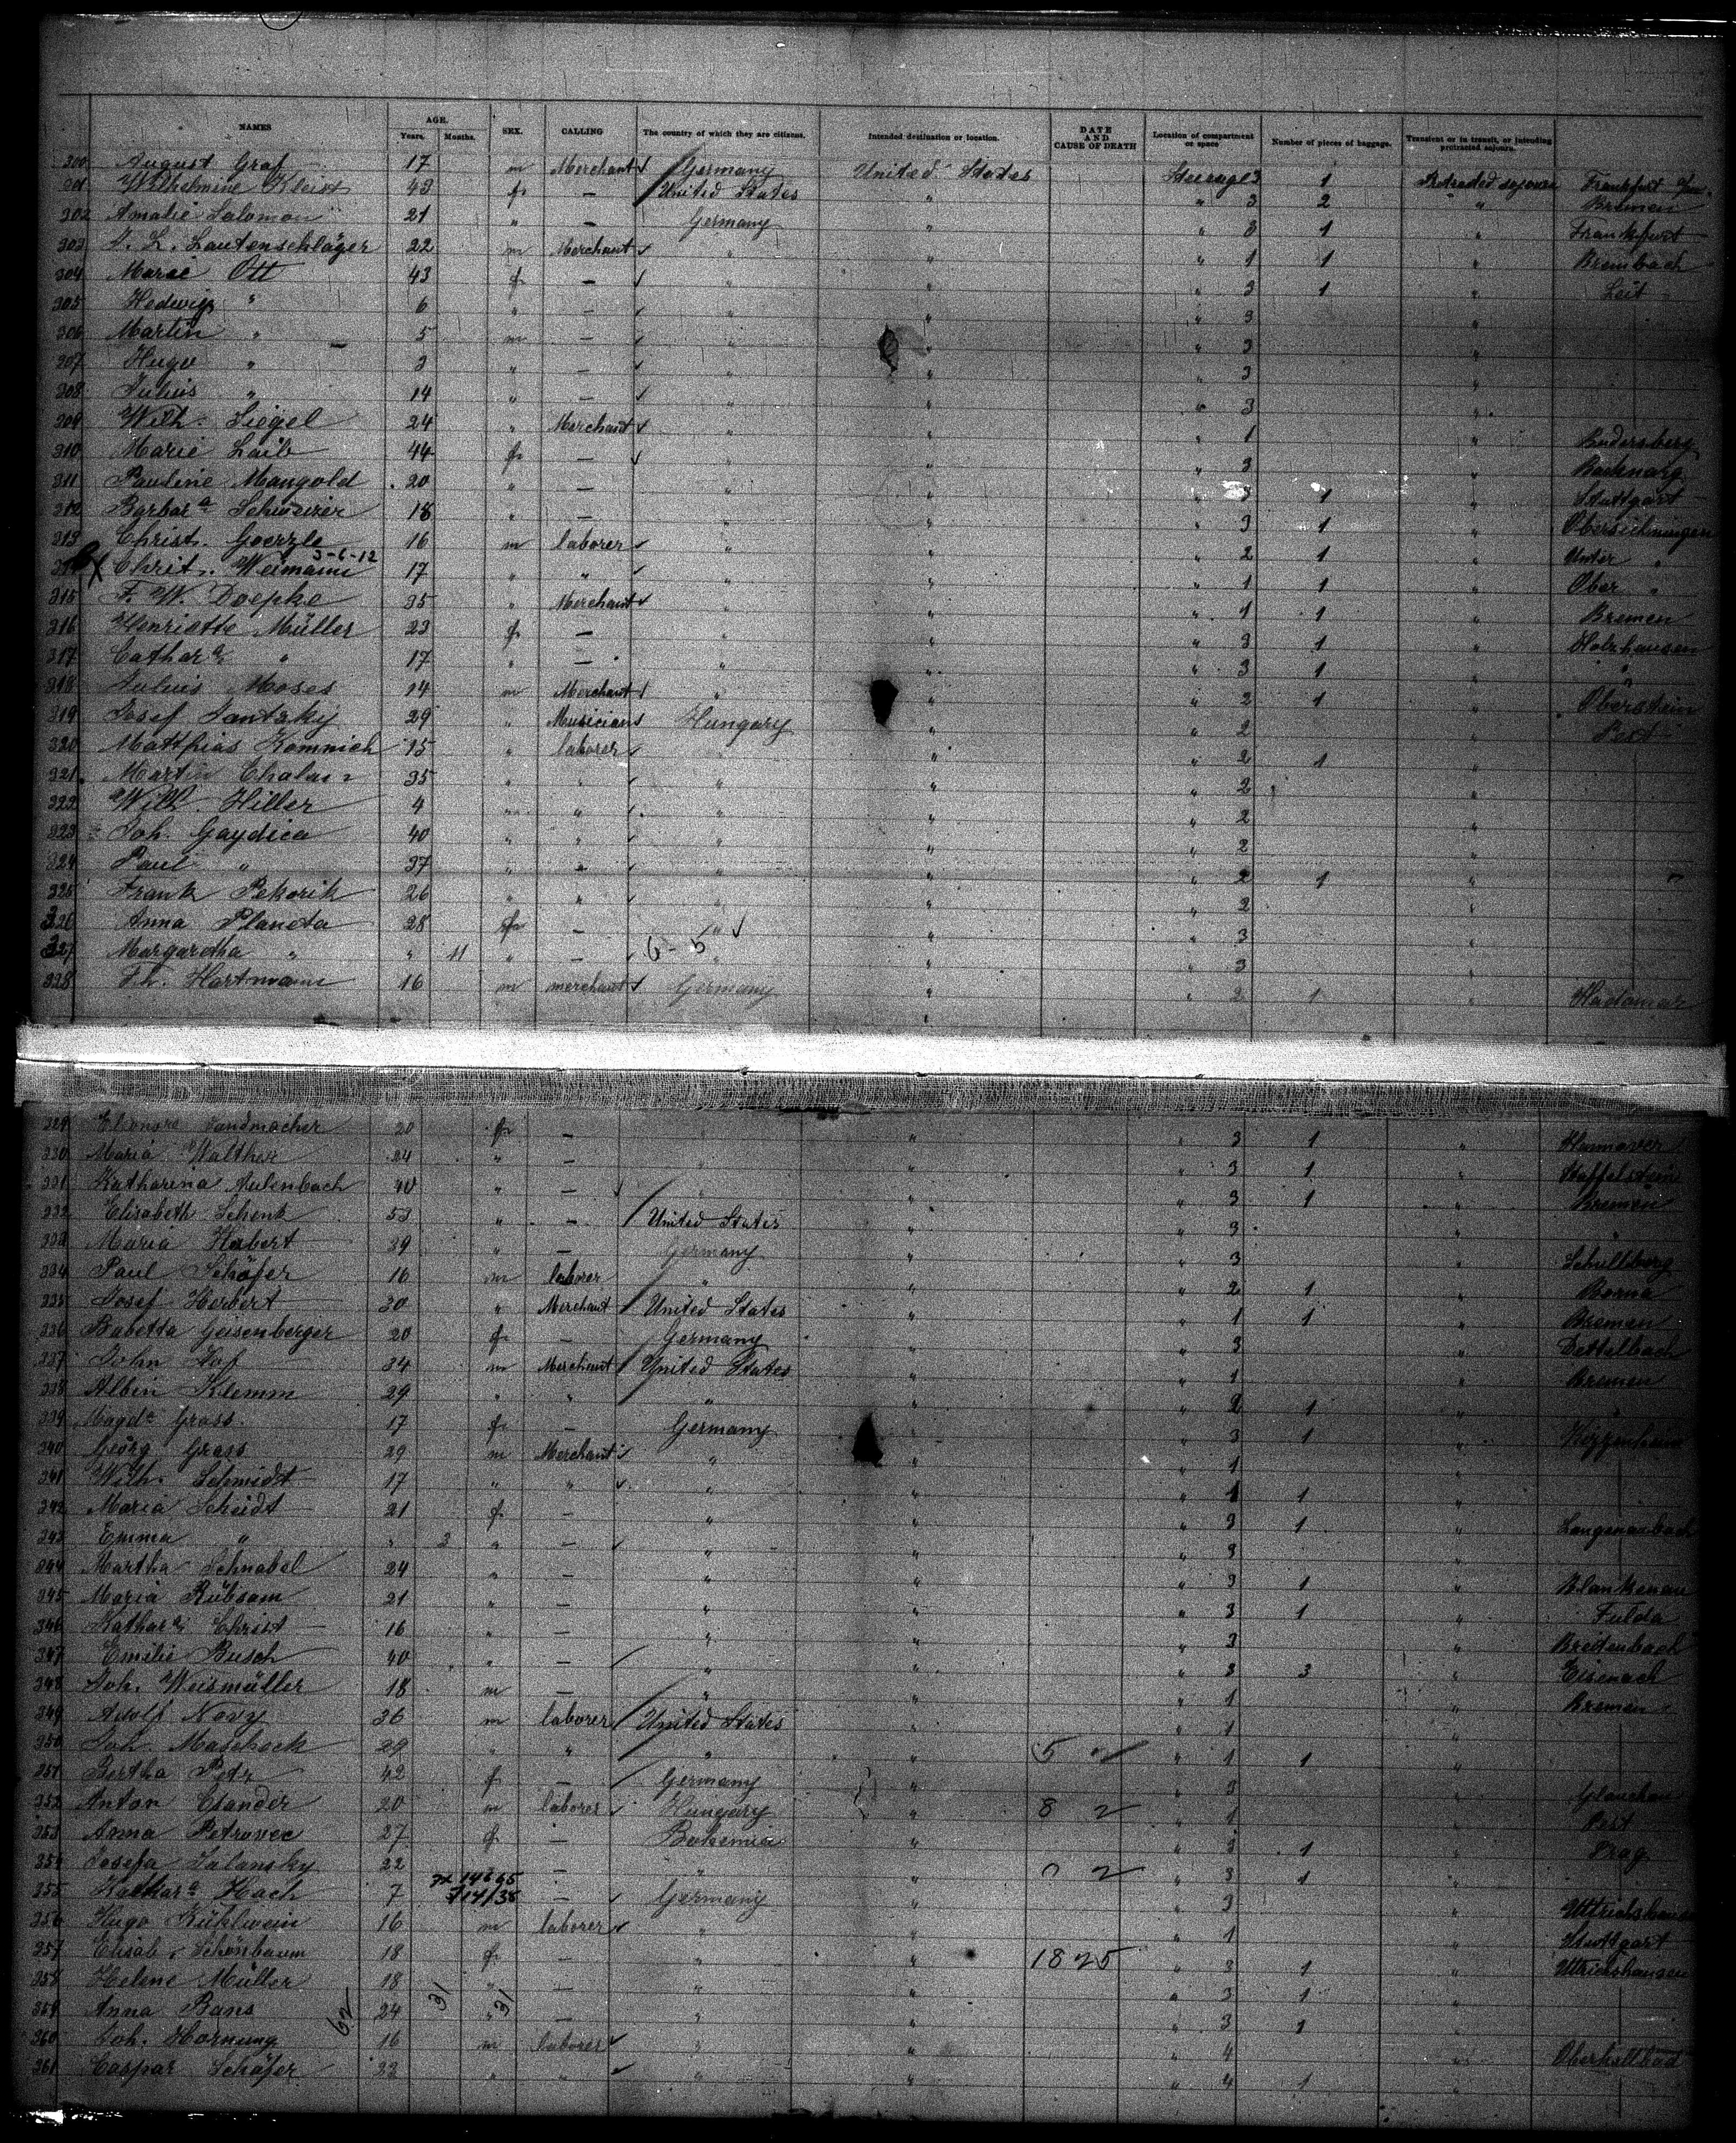 NAMES AGE. Years. Months. SEX. CALLING The country of which they are citizens. Intended destination or location. DATE AND CAUSE OF DEATH Location of compartment or space Number of pieces of baggage. Transient or in transit, or intending protracted sojourn.
300 August Graf 17 m Merchant Germany United States Steerage 3 1 Protracted sojourn Frankfurt
301 Wilhelmine Kleist 43 f — United States " " 3 2 " Bremen
302 Amalie Salomon 21 " — Germany " " 3 1 " Frankfurt
303 J. L. Lautenschläger 22 m Merchant " " " 1 1 " Brembach
304 Marie Ott 43 f — " " " 3 1 " Leit
305 Hedwig " 6 " — " " " 3 "
306 Martin " 5 m — " " " 3 "
307 Hugo " 3 " — " " " 3 "
308 Julius " 14 " — " " " 3 "
309 Wilh. Siegel 24 " Merchant " " " 1 " Rudersberg
310 Marie Laib 44 f — " " " 3 " Backnang
311 Pauline Mangold 20 " — " " " 3 1 " Stuttgart
312 Barbara Schweizer 18 " — " " " 3 1 "
313 Christ. Goerzle 16 m laborer " " " 2 1 " Unter "
3-6-12
314 X Christ. Weimann 17 " " " " " 1 1 " Ober "
315 F. W. Doepke 35 " Merchant " " " 1 1 " Bremen
316 Henriette Müller 23 f — " " " 3 1 " Holzhausen
317 Cathara " 17 " — " " " 3 1 " "
318 Julius Moses 14 m Merchant " " " 2 1 " Oberstein
319 Josef Jantzky 29 " Musician Hungary " " 2 " Pest
320 Matthias Komnich 15 " laborer " " " 2 1 "
321 Martin Chalan 35 " " " " " 2 "
322 Wilh. Hiller 4 " " " " " 2 "
323 Joh. Gaydica 40 " " " " " 2 "
324 Paul " 37 " " " " " 2 1 "
325 Frank Pekorik 26 " " " " " 2 "
326 Anna Planeta 28 f — " " " 3 "
327 Margaretha " " 11 " — 6-5 " " " 3 "
328 Fr. Hartmann 16 m merchant Germany " " 2 1 " Hadamar
329 Eleonore Sandmacher 20 f — " " " 3 1 " Hannover
330 Maria Walther 24 " — " " " 3 1 " Staffelstein
331 Katharina Aulenbach 40 " — " " " 3 1 " Bremen
332 Elisabeth Schenk 53 " — United States " " 3 " "
333 Maria Habert 39 " — Germany " " 3 "
334 Paul Schäfer 16 m laborer " " " 2 1 " Borna
335 Josef Herbert 30 " Merchant United States " " 1 1 " Bremen
336 Babetta Geisenberger 20 f — Germany " " 3 " Dettelbach
337 John Hof 34 m Merchant United States " " 1 " Bremen
338 Albin Klemm 29 " " " " " 2 1 " "
339 Magda Grass 17 f — Germany " " 3 1 "
340 Georg Grass 29 m Merchant " " " 1 "
341 Wilh. Schmidt 17 " " " " " 1 1 "
342 Maria Scheidt 21 f — " " " 3 1 " Langenaubach
343 Emma " " 3 " — " " " 3 "
344 Martha Schnabel 24 " — " " " 3 1 " Blankenau
345 Maria Rübsam 21 " — " " " 3 1 " Fulda
346 Kathara Christ 16 " — " " " 3 " Breitenbach
347 Emilie Busch 40 " — " " " 3 3 " Eisenach
348 Joh. Weismüller 18 m — " " " 1 " Bremen
349 Adolf Novy 36 m laborer United States " " 1 "
350 Joh. Maschack 29 " " " " " 1 1 "
351 Bertha Petr 42 f — Germany " " 3 " Glauchau
352 Anton Csander 20 m laborer Hungary " 8 2 " 1 " Pest
353 Anna Petrovec 27 f — Bohemia " " 3 1 " Prag
354 Josefa Salansky 22 — " " " 3 1 "
355 Kathara Hach 7 — Germany " " 3 " Uttrichshausen
356 Hugo Kühlwein 16 m laborer " " " 1 " Stuttgart
357 Elisab. Schönbaum 18 f — " " 1825 " 3 1 " Uttrichshausen
358 Helene Müller 18 " — " " " 3 1 "
62 31 31
359 Anna Bans 24 " — " " " 3 1 "
360 Joh. Hornung 16 m laborer " " " 4 "
361 Caspar Schäfer 23 " " " " " 4 1 "